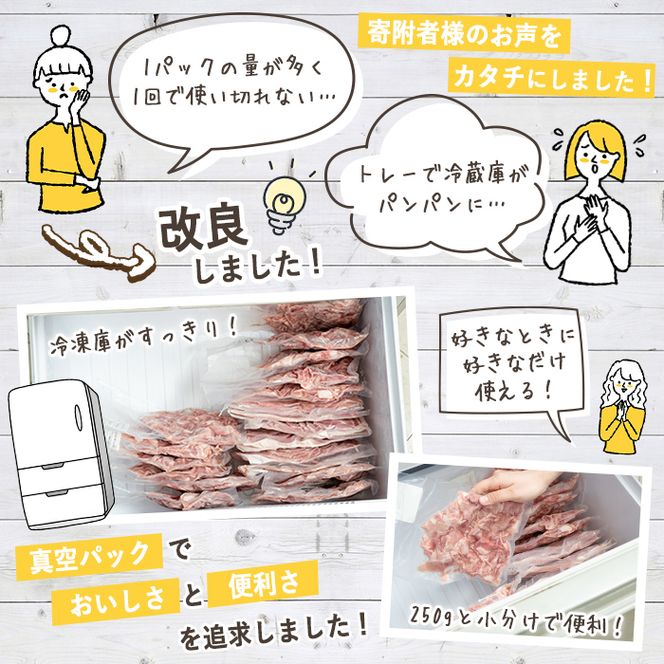 寄附者様のお声を
カタチにしました！
1パックの量が多く
1回で使い切れない…
トレーで冷蔵庫が
パンパンに…
改良
しました！
冷凍庫がすっきり！
好きなときに
好きなだけ
使える！
250gと小分けで便利！
真空パックで
おいしさと便利さ
を追求しました！